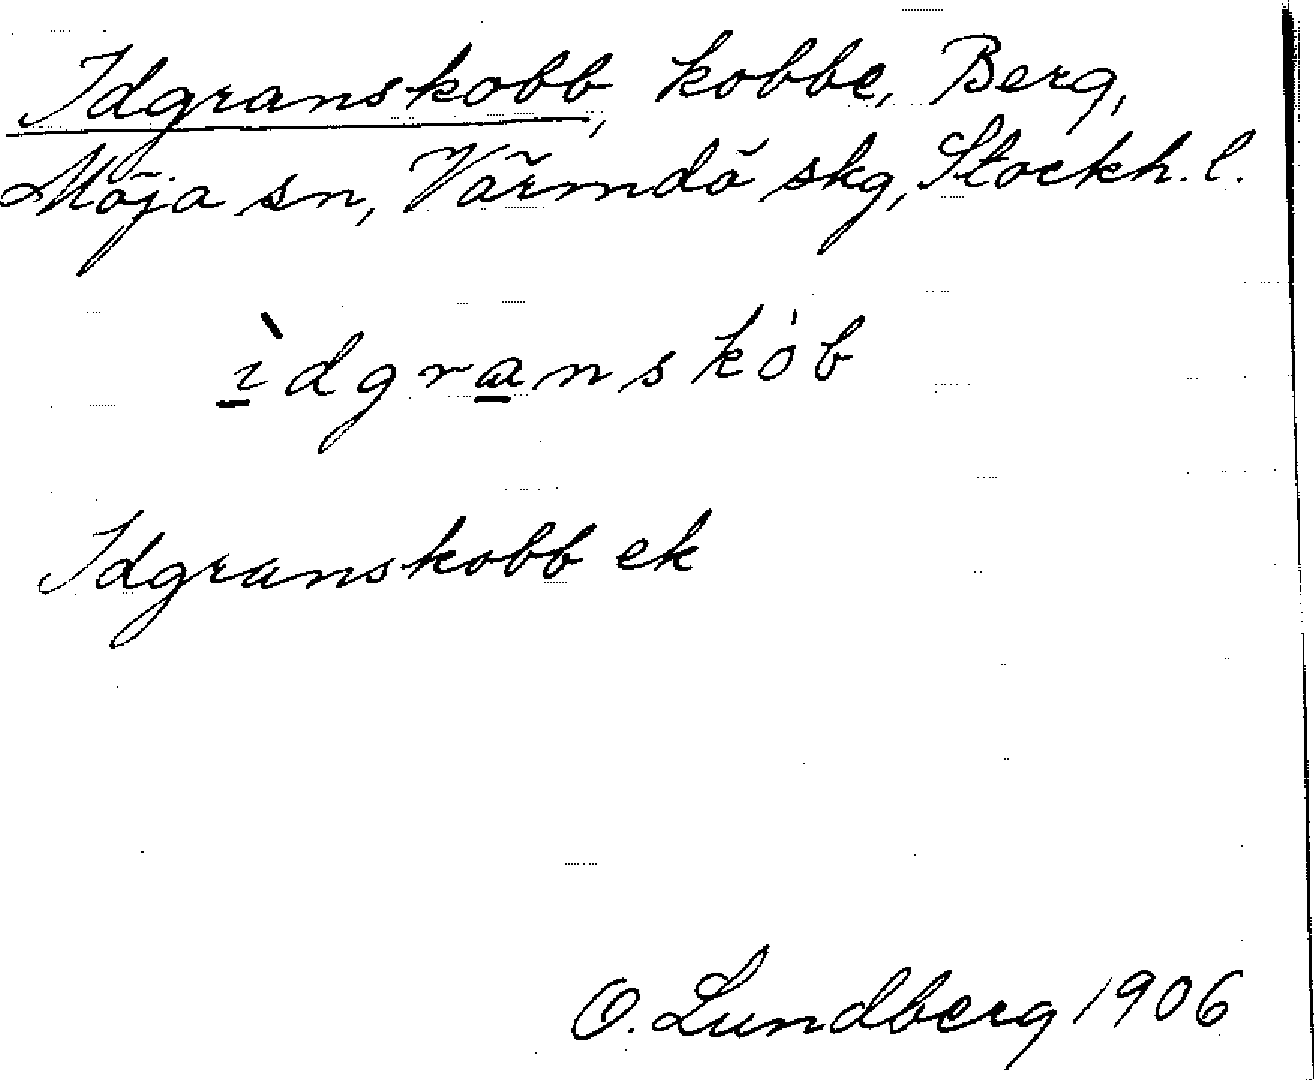 Idgranskobb, kobbe, Berg,
Möja sn, Värmdö skg, Stockh. l.
ìdgranskȯb
Idgranskobb ek
O. Lundberg 1906